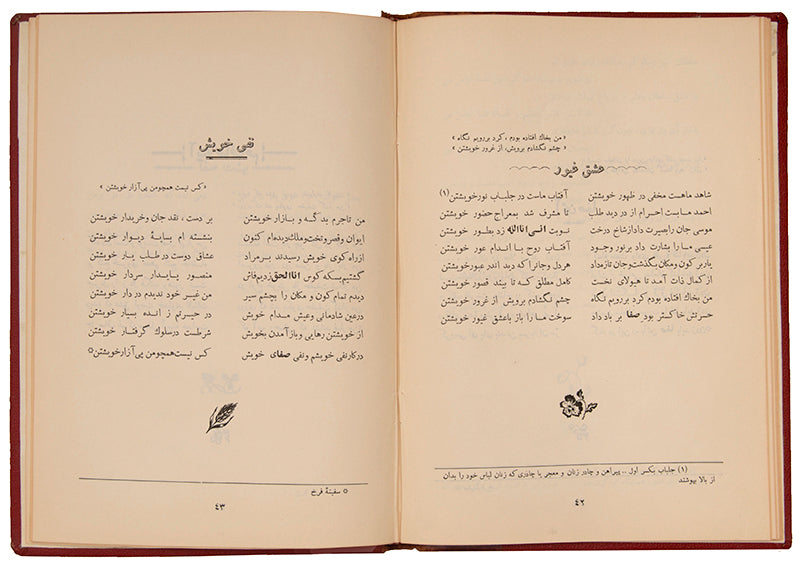 « من بخاك افتاده بودم ، كرد بررويم نگاه »
« چشم نگشادم برويش، از غرور خويشتن »
عشق غيور
شاهد ماهست مخفی در ظهور خويشتن آفتاب ماست در جلباب نورخويشتن (۱)
احمد ماست احرام از در ديد طلب تا مشرف شد بمعراج حضور خويشتن
موسی جان رابصيرت داد ازشاخ درخت نوبت انی اناالله زد بطور خويشتن
عيسی ما را بشارت داد برنور وجود آفتاب روح با اندام عور خويشتن
ياربر كون ومكان بگذشت وجان تازه داد هردل وجانرا كه ديد اندر عبورخويشتن
از كمال ذات آمد تا هيولای نخست كامل مطلق كه تا بيند قصور خويشتن
من بخاك افتاده بودم كرد بررويم نگاه چشم نگشادم برويش از غرور خويشتن
حسرتش خاكستر بود صفا بر باد داد سوخت ما را باز باعشق غيور خويشتن
(۱) جلباب بكسر اول .. پيراهن و چادر زنان و معجر يا چادری كه زنان لباس خود را بدان
از بالا بپوشند
٤٢
نفی خويش
« كس نيست همچومن پی آزار خويشتن »
من تاجرم بدكه و بازار خويشتن بر دست ، نقد جان وخريدار خويشتن
ايوان وقصروتخت وملك بديده‌ام كنون بنشسته ام بسايهٔ ديوار خويشتن
ازراه كوی خويش رسيدند بر مراد عشاق دوست در طلب يار خويشتن
گشتيم بسكه كوس اناالحق زديم فاش منصور پايدار سردار خويشتن
ديدم تمام كون و مكان را بچشم سير من غير خود نديدم در دار خويشتن
درعين شادمانی وعيش مدام خويش در حيرتم ز انده بسيار خويشتن
از خويشتن رهايی وباز آمدن بخويش شرطست درسلوك گرفتار خويشتن
دركارنفی خويشم ونفی صفای خويش كس نيست همچومن پی آزارخويشتن ٥
٥ سفينهٔ فرخ
٤٣